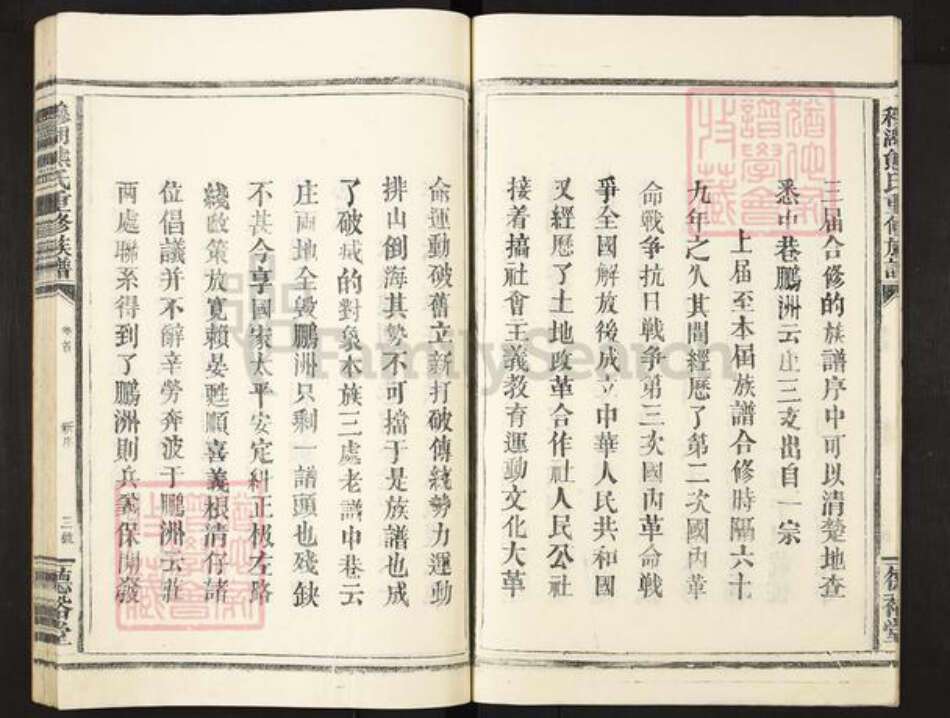 三届合修的族譜序中可以清楚地查
悉中巷鵬洲云庄三支出自一宗
上届至本届族譜合修時隔六十
九年之久其間經歷了第二次國内革
命戰争抗日戰争第三次國内革命戰
爭全國解放後成立中華人民共和國
又經歷了土地改革合作社人民公社
接着搞社會主義教育運動文化大革
命運動破舊立新打破傳綫勢力運動
排山倒海其勢不可擋于是族譜也成
了破或的對象本族三處老譜中巷云
庄両地全毀鵬洲只剩一譜頭也殘鈌
不甚今享國家太平安定糾正极左路
綫政策放寬賴晏甦順喜義根清仔諸
位倡議并不辭辛勞奔波于鵬洲云莊
两處聯系得到了鵬洲則兵義保開發
熊氏重修族譜
卷首
新序
三號
FamilySearch